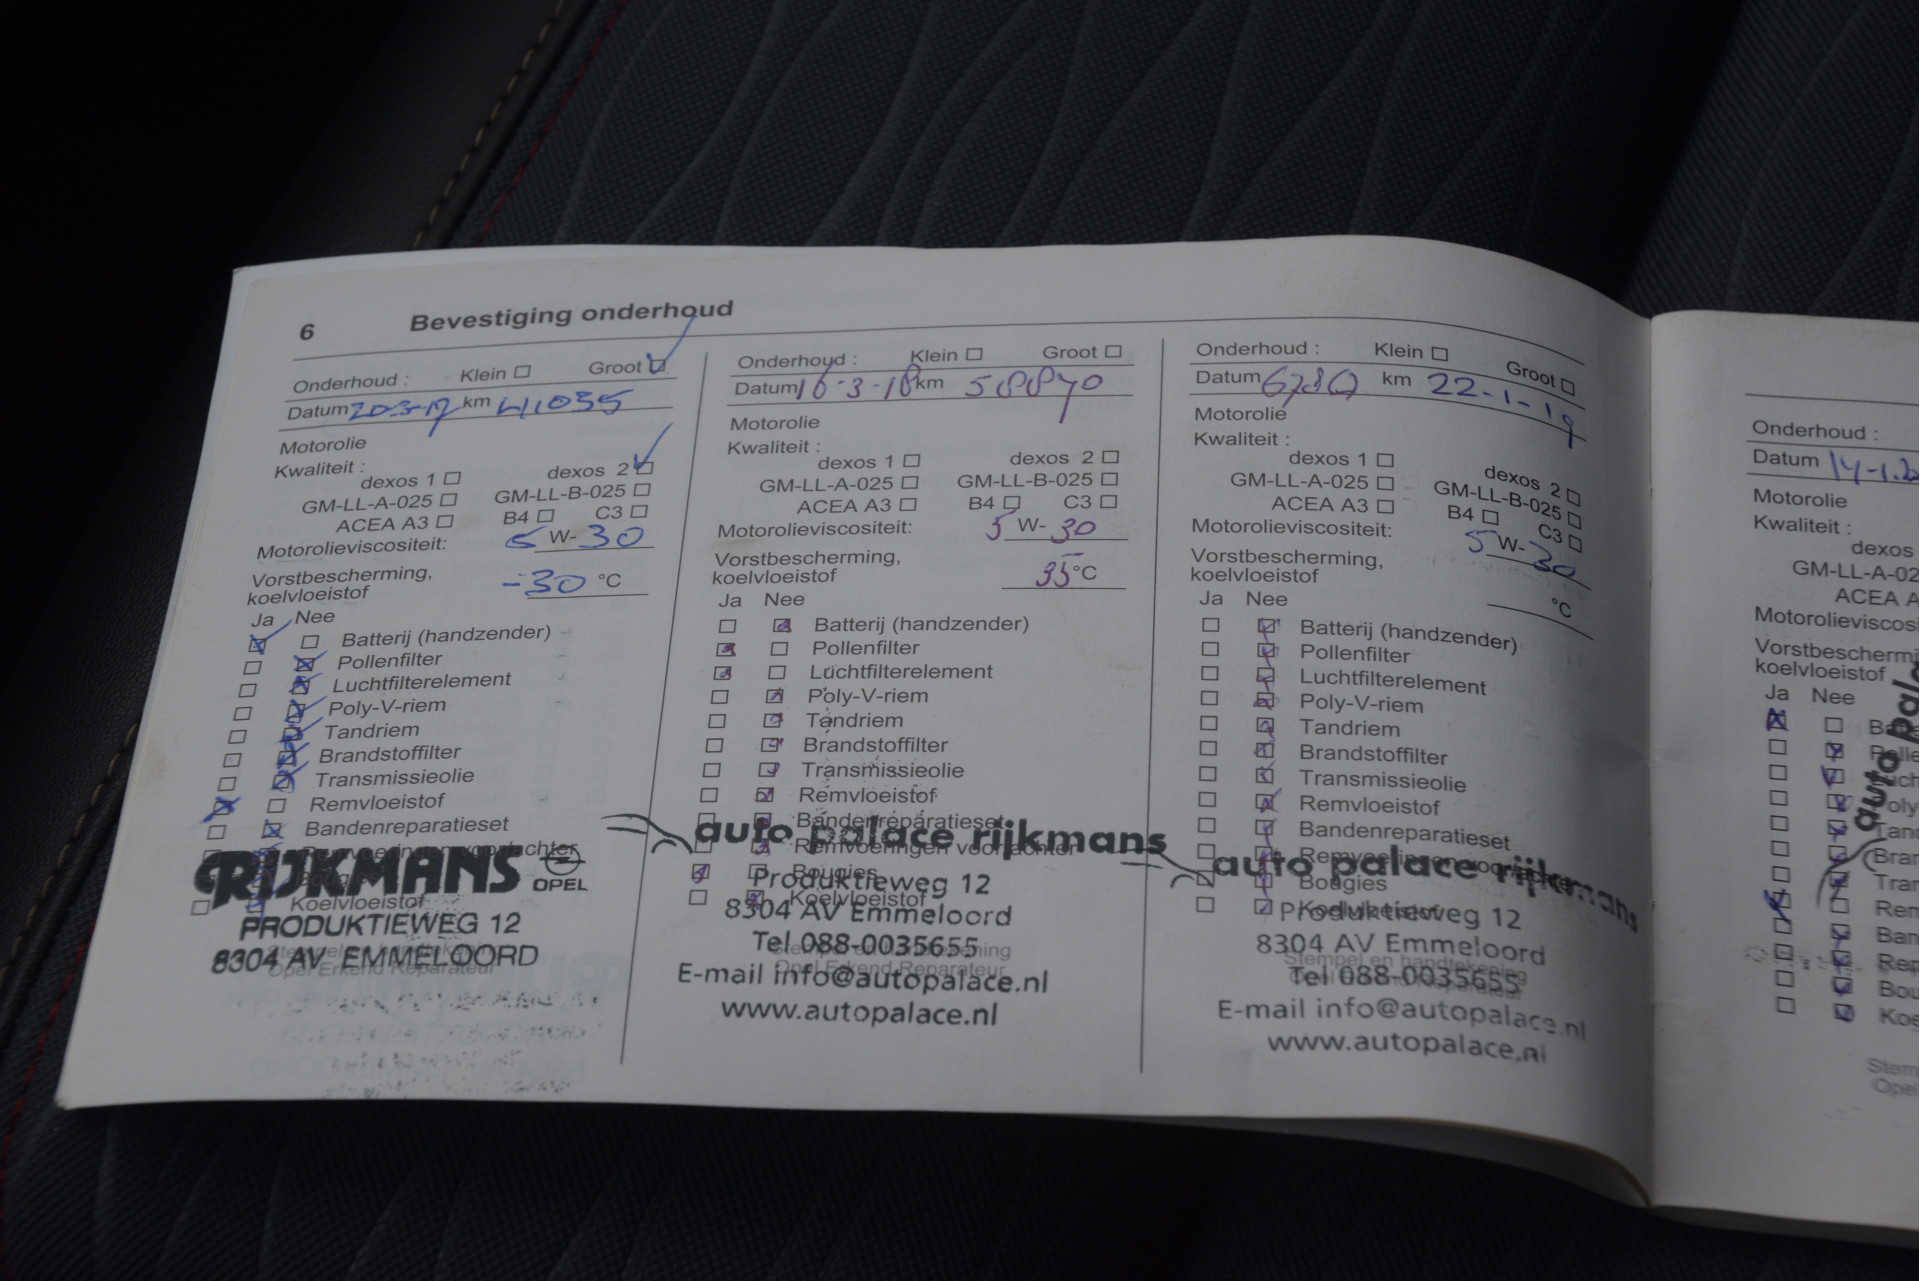 6 Bevestiging onderhoud
Onderhoud : Klein Groot
Datum 20-3-17 km 41035
Motorolie
Kwaliteit :
dexos 1 dexos 2
GM-LL-A-025 GM-LL-B-025
ACEA A3 B4 C3
Motorolieviscositeit: 5 W- 30
Vorstbescherming,
koelvloeistof -30 °C
Ja Nee
Batterij (handzender)
Pollenfilter
Luchtfilterelement
Poly-V-riem
Tandriem
Brandstoffilter
Transmissieolie
Remvloeistof
Bandenreparatieset
Remvoeringen voor/achter
Koelvloeistof
RIJKMANS OPEL
PRODUKTIEWEG 12
8304 AV EMMELOORD
Stempel en handtekening
Opel Erkend Reparateur
Onderhoud : Klein Groot
Datum 16-3-18 km 58870
Motorolie
Kwaliteit :
dexos 1 dexos 2
GM-LL-A-025 GM-LL-B-025
ACEA A3 B4 C3
Motorolieviscositeit: 5 W- 30
Vorstbescherming,
koelvloeistof 35 °C
Ja Nee
Batterij (handzender)
Pollenfilter
Luchtfilterelement
Poly-V-riem
Tandriem
Brandstoffilter
Transmissieolie
Remvloeistof
Bandenreparatieset
Remvoeringen voor/achter
Bougies
Koelvloeistof
auto palace rijkmans
Produktieweg 12
8304 AV Emmeloord
Tel 088-0035655
Stempel en handtekening
Opel Erkend Reparateur
E-mail info@autopalace.nl
www.autopalace.nl
Onderhoud : Klein Groot
Datum km 22-1-19
Motorolie
Kwaliteit :
dexos 1 dexos 2
GM-LL-A-025 GM-LL-B-025
ACEA A3 B4 C3
Motorolieviscositeit: 5 W- 30
Vorstbescherming,
koelvloeistof °C
Ja Nee
Batterij (handzender)
Pollenfilter
Luchtfilterelement
Poly-V-riem
Tandriem
Brandstoffilter
Transmissieolie
Remvloeistof
Bandenreparatieset
Remvoeringen voor/achter
Bougies
Koelvloeistof
auto palace rijkmans
Produktieweg 12
8304 AV Emmeloord
Stempel en handtekening
Tel 088-0035655
E-mail info@autopalace.nl
www.autopalace.nl
Onderhoud :
Datum 14-1-2
Motorolie
Kwaliteit :
dexos
GM-LL-A-02
ACEA A
Motorolieviscosi
Vorstbeschermi
koelvloeistof
Ja Nee
Bat
Polle
uch
oly
Tand
Bran
Tran
Rem
Ban
Rem
Bou
Koe
auto pala
Stem
Opel